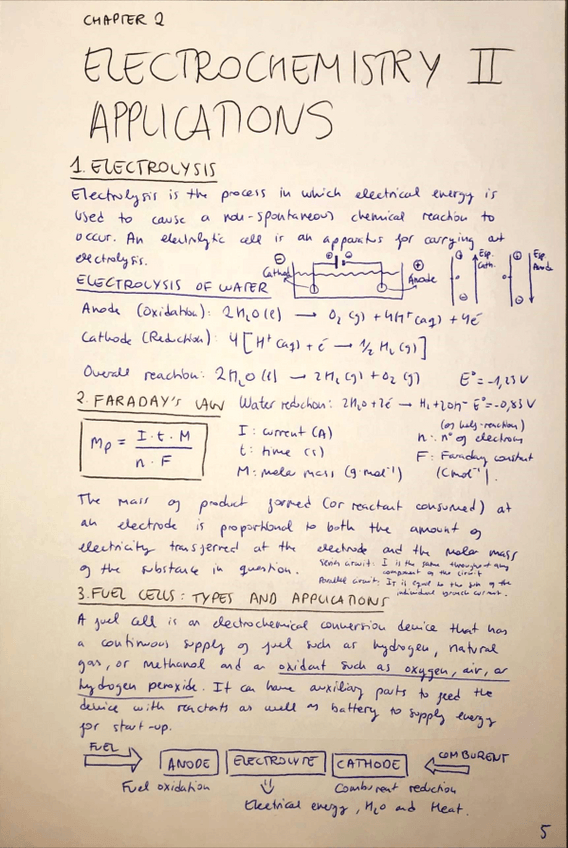 CHAPTER 2
ELECTROCHEMISTRY II
APPLICATIONS
1. ELECTROLYSIS
Electrolysis is the process in which electrical energy is
used to cause a non-spontaneous chemical reaction to
occur. An electrolytic cell is an apparatus for carrying out
electrolysis.
⊖ Cathode ⊖ ⊕ ⊕ Anode
Esp. Cath. Esp. Anode
ELECTROLYSIS OF WATER
Anode (Oxidation): 2H₂O(l) → O₂(g) + 4H⁺(aq) + 4e⁻
Cathode (Reduction): 4[H⁺(aq) + e⁻ → 1/2 H₂(g)]
Overall reaction: 2H₂O(l) → 2H₂(g) + O₂(g) E° = -1,23 V
2. FARADAY'S LAW Water reduction: 2H₂O + 2e⁻ → H₂ + 2OH⁻ E° = -0,83 V
(of half-reaction)
mp = I·t·M / n·F
I: current (A) n: nº of electrons
t: time (s) F: Faraday constant
M: molar mass (g·mol⁻¹) (C mol⁻¹).
The mass of product formed (or reactant consumed) at
an electrode is proportional to both the amount of
electricity transferred at the electrode and the molar mass
of the substance in question.
Series circuit: I is the same throughout any
component of the circuit
Parallel circuit: It is equal to the sum of the
individual branch current.
3. FUEL CELLS: TYPES AND APPLICATIONS
A fuel cell is an electrochemical conversion device that has
a continuous supply of fuel such as hydrogen, natural
gas, or methanol and an oxidant such as oxygen, air, or
hydrogen peroxide. It can have auxiliary parts to feed the
device with reactants as well as battery to supply energy
for start-up.
FUEL ANODE ELECTROLYTE CATHODE COMBURENT
Fuel oxidation Comburent reduction
Electrical energy, H₂O and Heat.
5